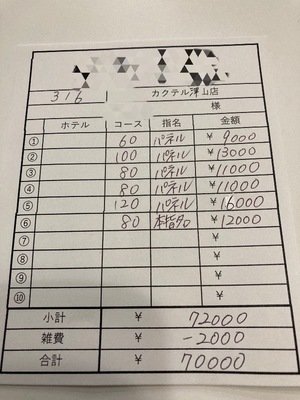 316 カクテル津山店
様
ホテル コース 指名 金額
① 60 パネル ¥ 9000
② 100 パネル ¥ 13000
③ 80 パネル ¥ 11000
④ 80 パネル ¥ 11000
⑤ 120 パネル ¥ 16000
⑥ 80 本指名 ¥ 12000
⑦ ¥
⑧ ¥
⑨ ¥
⑩ ¥
小計 ¥ 72000
雑費 ¥ -2000
合計 ¥ 70000